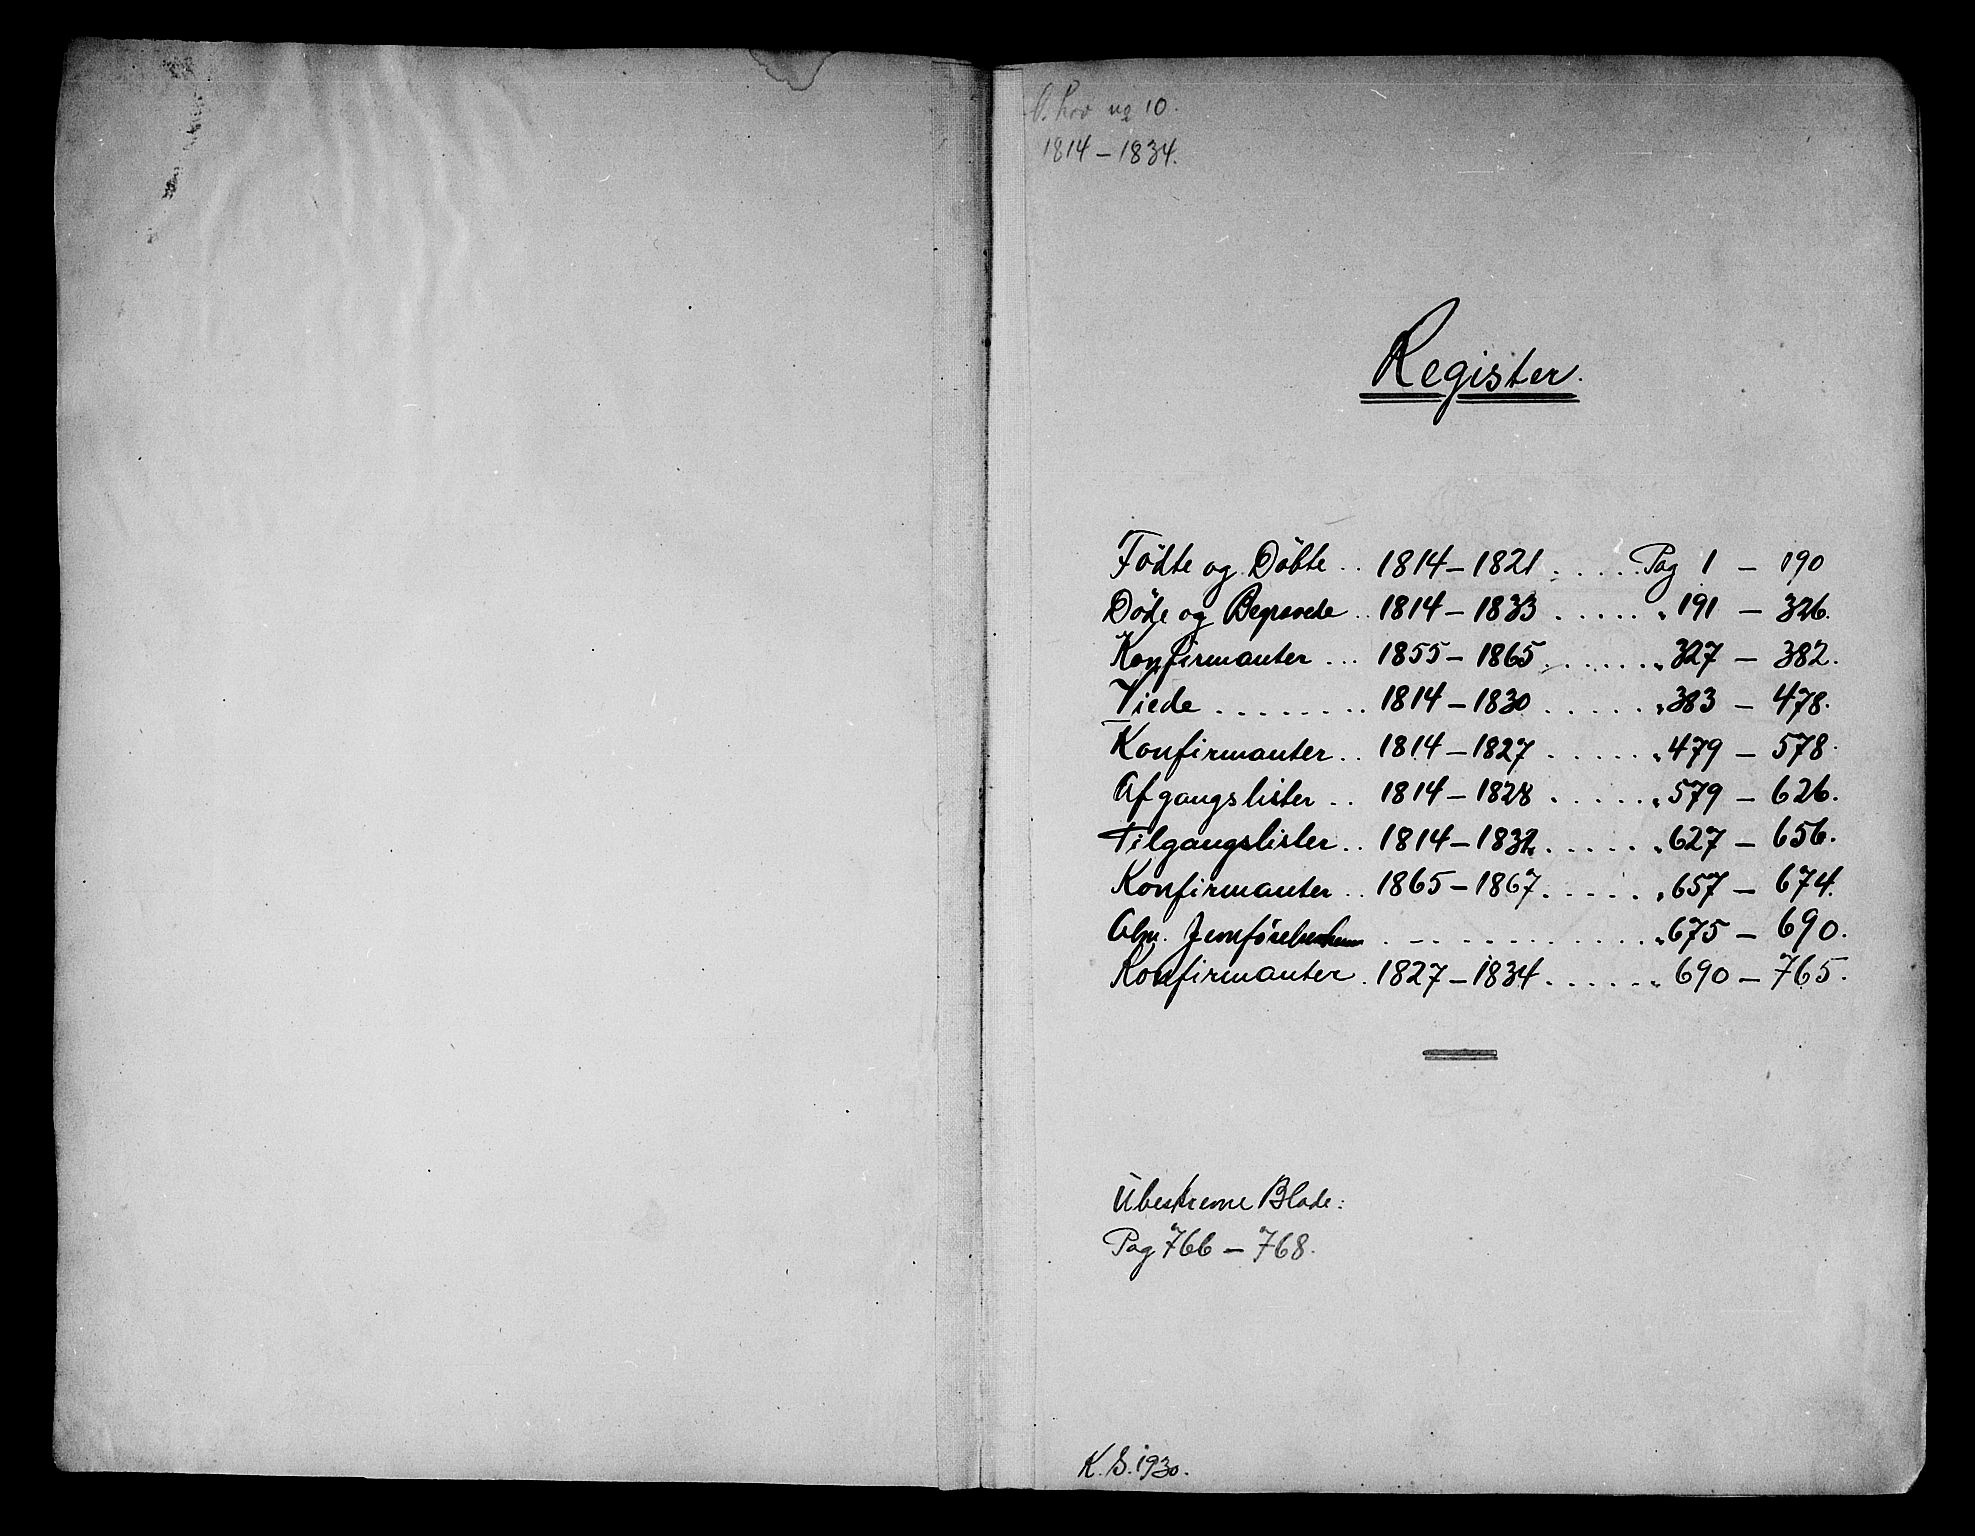 nq 10.
1814 – 1834.
Register.
Födte og Döbte .. 1814 – 1821 ..... Pag 1 – 190
Döde og Begravede .. 1814 – 1833 ..... " 191 – 326.
Konfirmanter ... 1855 – 1865 ...... " 327 – 382.
Viede ........ 1814 – 1830 ..... " 383 – 478.
Konfirmanter .. 1814 – 1827 ..... " 479 – 578.
Afgangslister .. 1814 – 1828 ..... " 579 – 626.
Tilgangslister .. 1814 – 1832 ..... " 627 – 656.
Konfirmanter .. 1865 – 1867 ..... " 657 – 674.
Alm. ........... " 675 – 690.
Konfirmanter . 1827 – 1834 ..... " 690 – 765.
Ubeskrevne Blade:
Pag 766 – 768.
K. S. 1930.